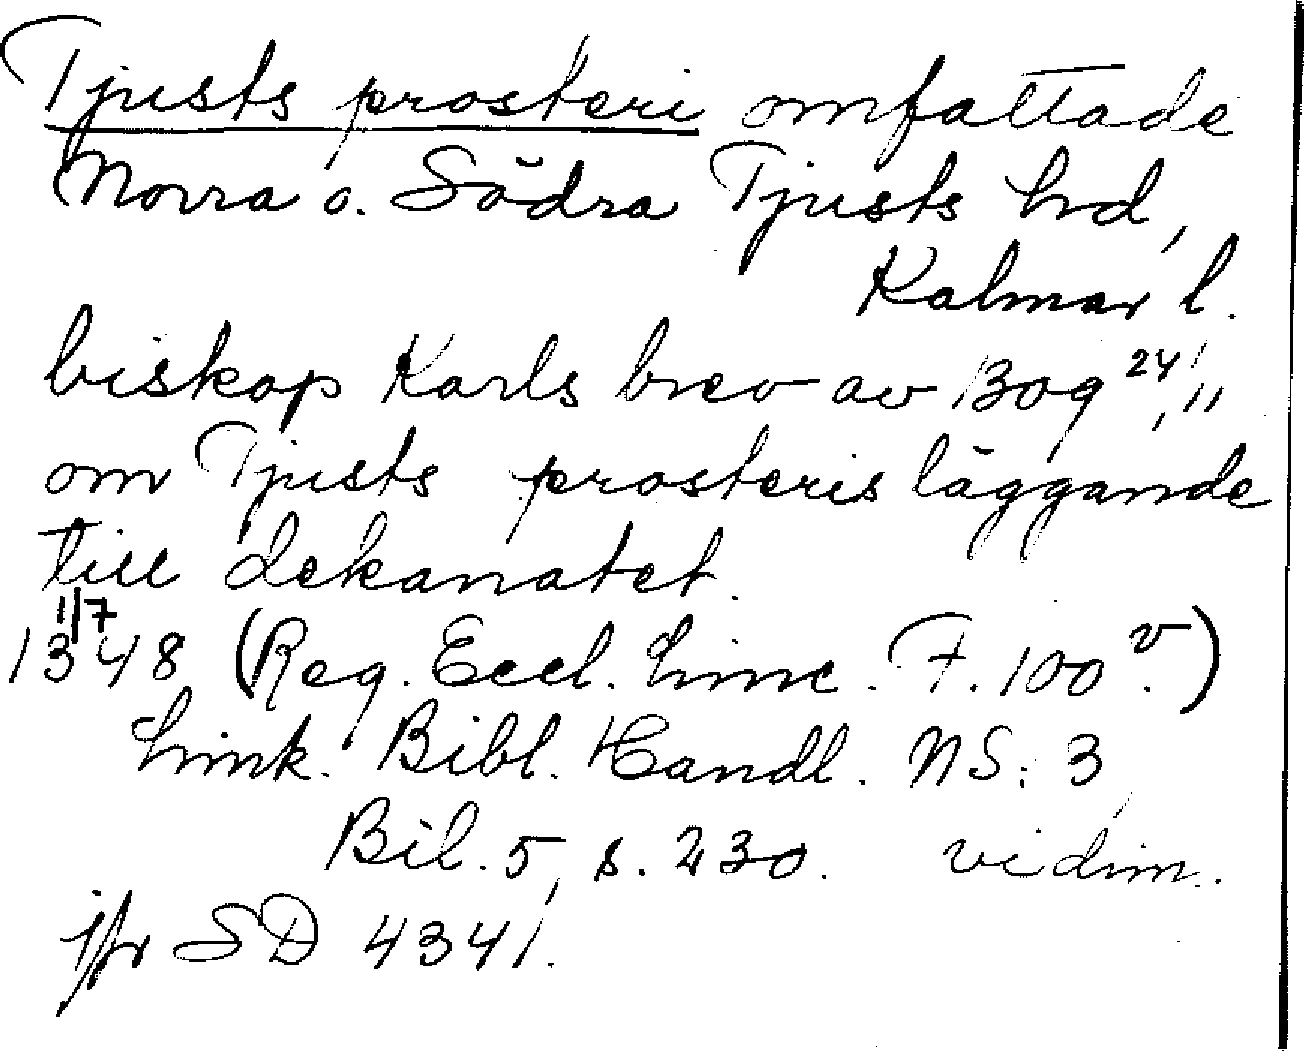 Tjusts prosteri omfattade
Norra o. Södra Tjusts hd,
Kalmar l.
biskop Karls brev av 1309 24/11,
om Tjusts prosteris läggande
till dekanatet.
1/7
1348 (Reg. Eccl. Linc. F. 100 v.)
Link. Bibl. Handl. NS: 3,
Bil. 5, s. 230. vidim.
jfr SD 4341.